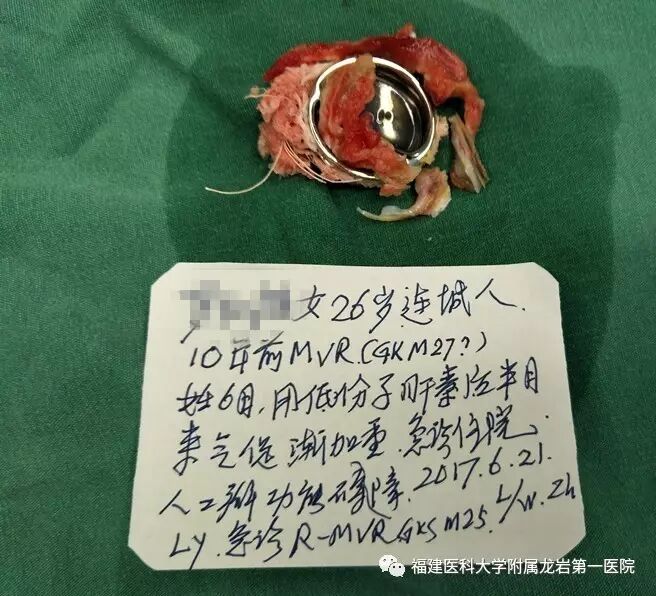 女26岁连城人.
10年前MVR.(GKM27?)
妊6月,用低份子肝素后半月
来气促渐加重.急诊住院.
人工瓣功能障碍.2017.6.21.
LY.急诊R-MVR.GKSM25.L/W.Zh
福建医科大学附属龙岩第一医院